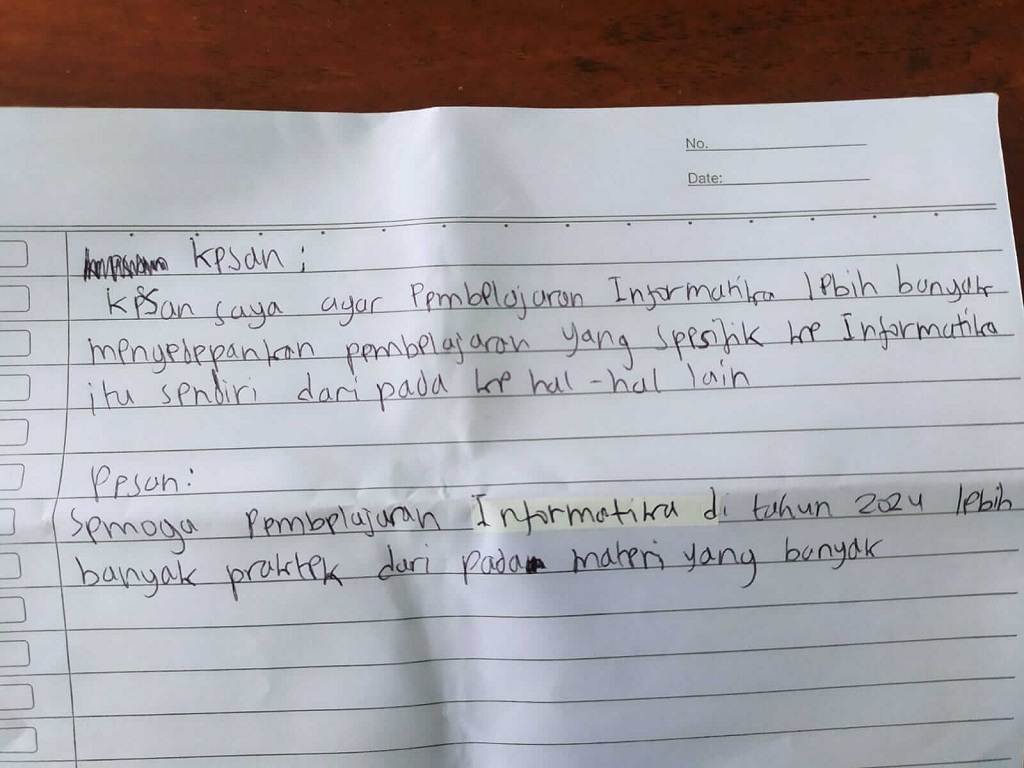 No.
Date:
kesan :
kesan saya agar Pembelajaran Informatika lebih banyak
menyedepankan pembelajaran yang spesifik ke Informatika
itu sendiri dari pada ke hal-hal lain
Pesan:
Semoga Pembelajaran Informatika di tahun 2024 lebih
banyak praktek dari pada materi yang banyak